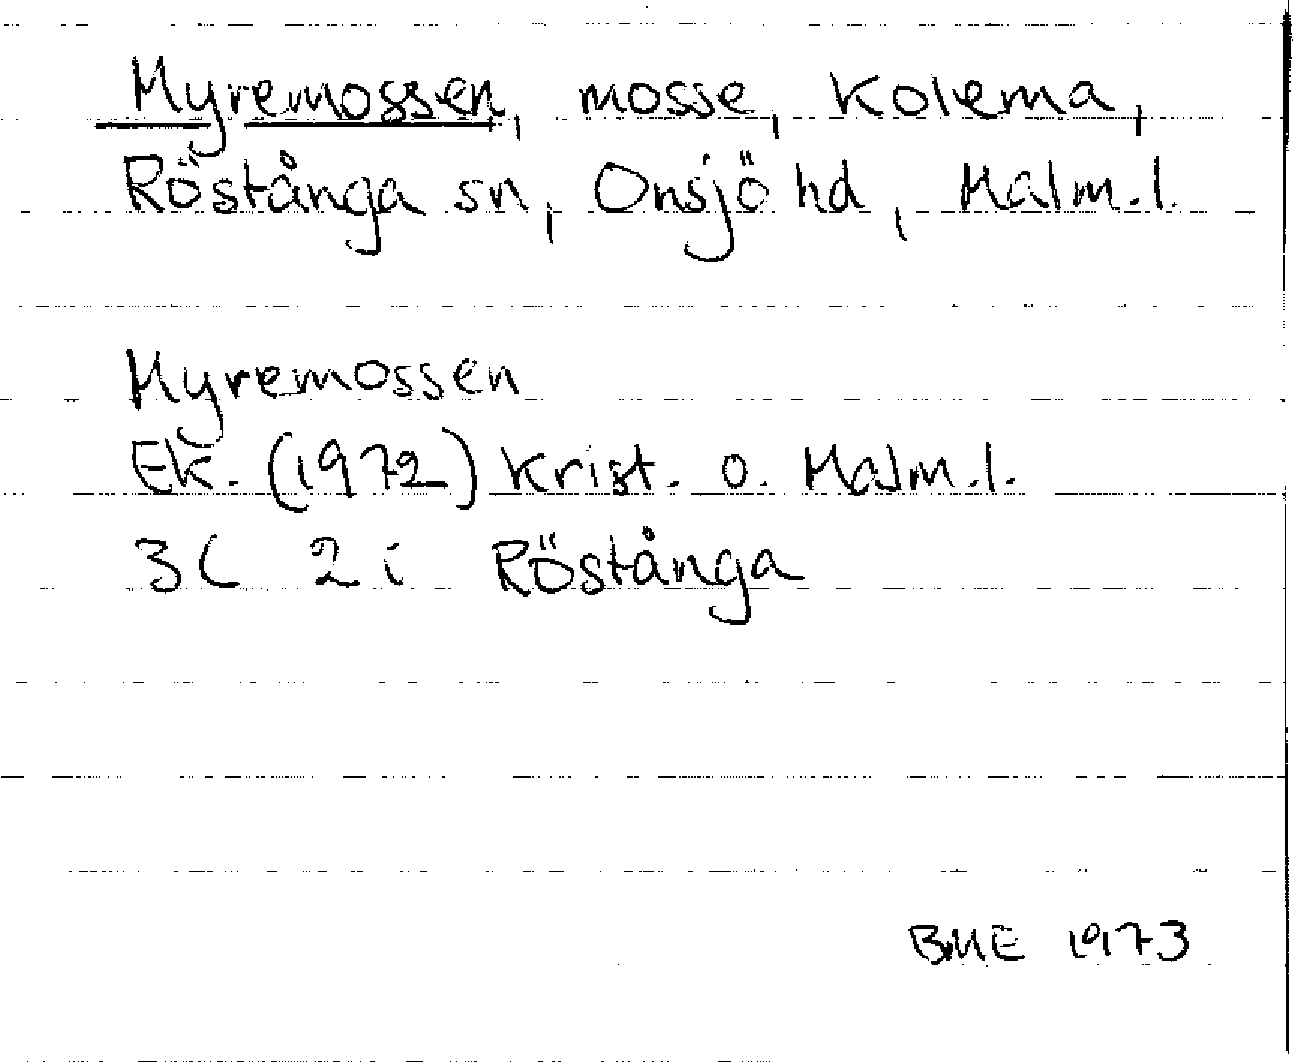 Myremossen, mosse, Kolema,
Röstånga sn, Onsjö hd, Malm.l.
Myremossen
Ek. (1972) Krist. o. Malm.l.
3C 2i Röstånga
BME 1973